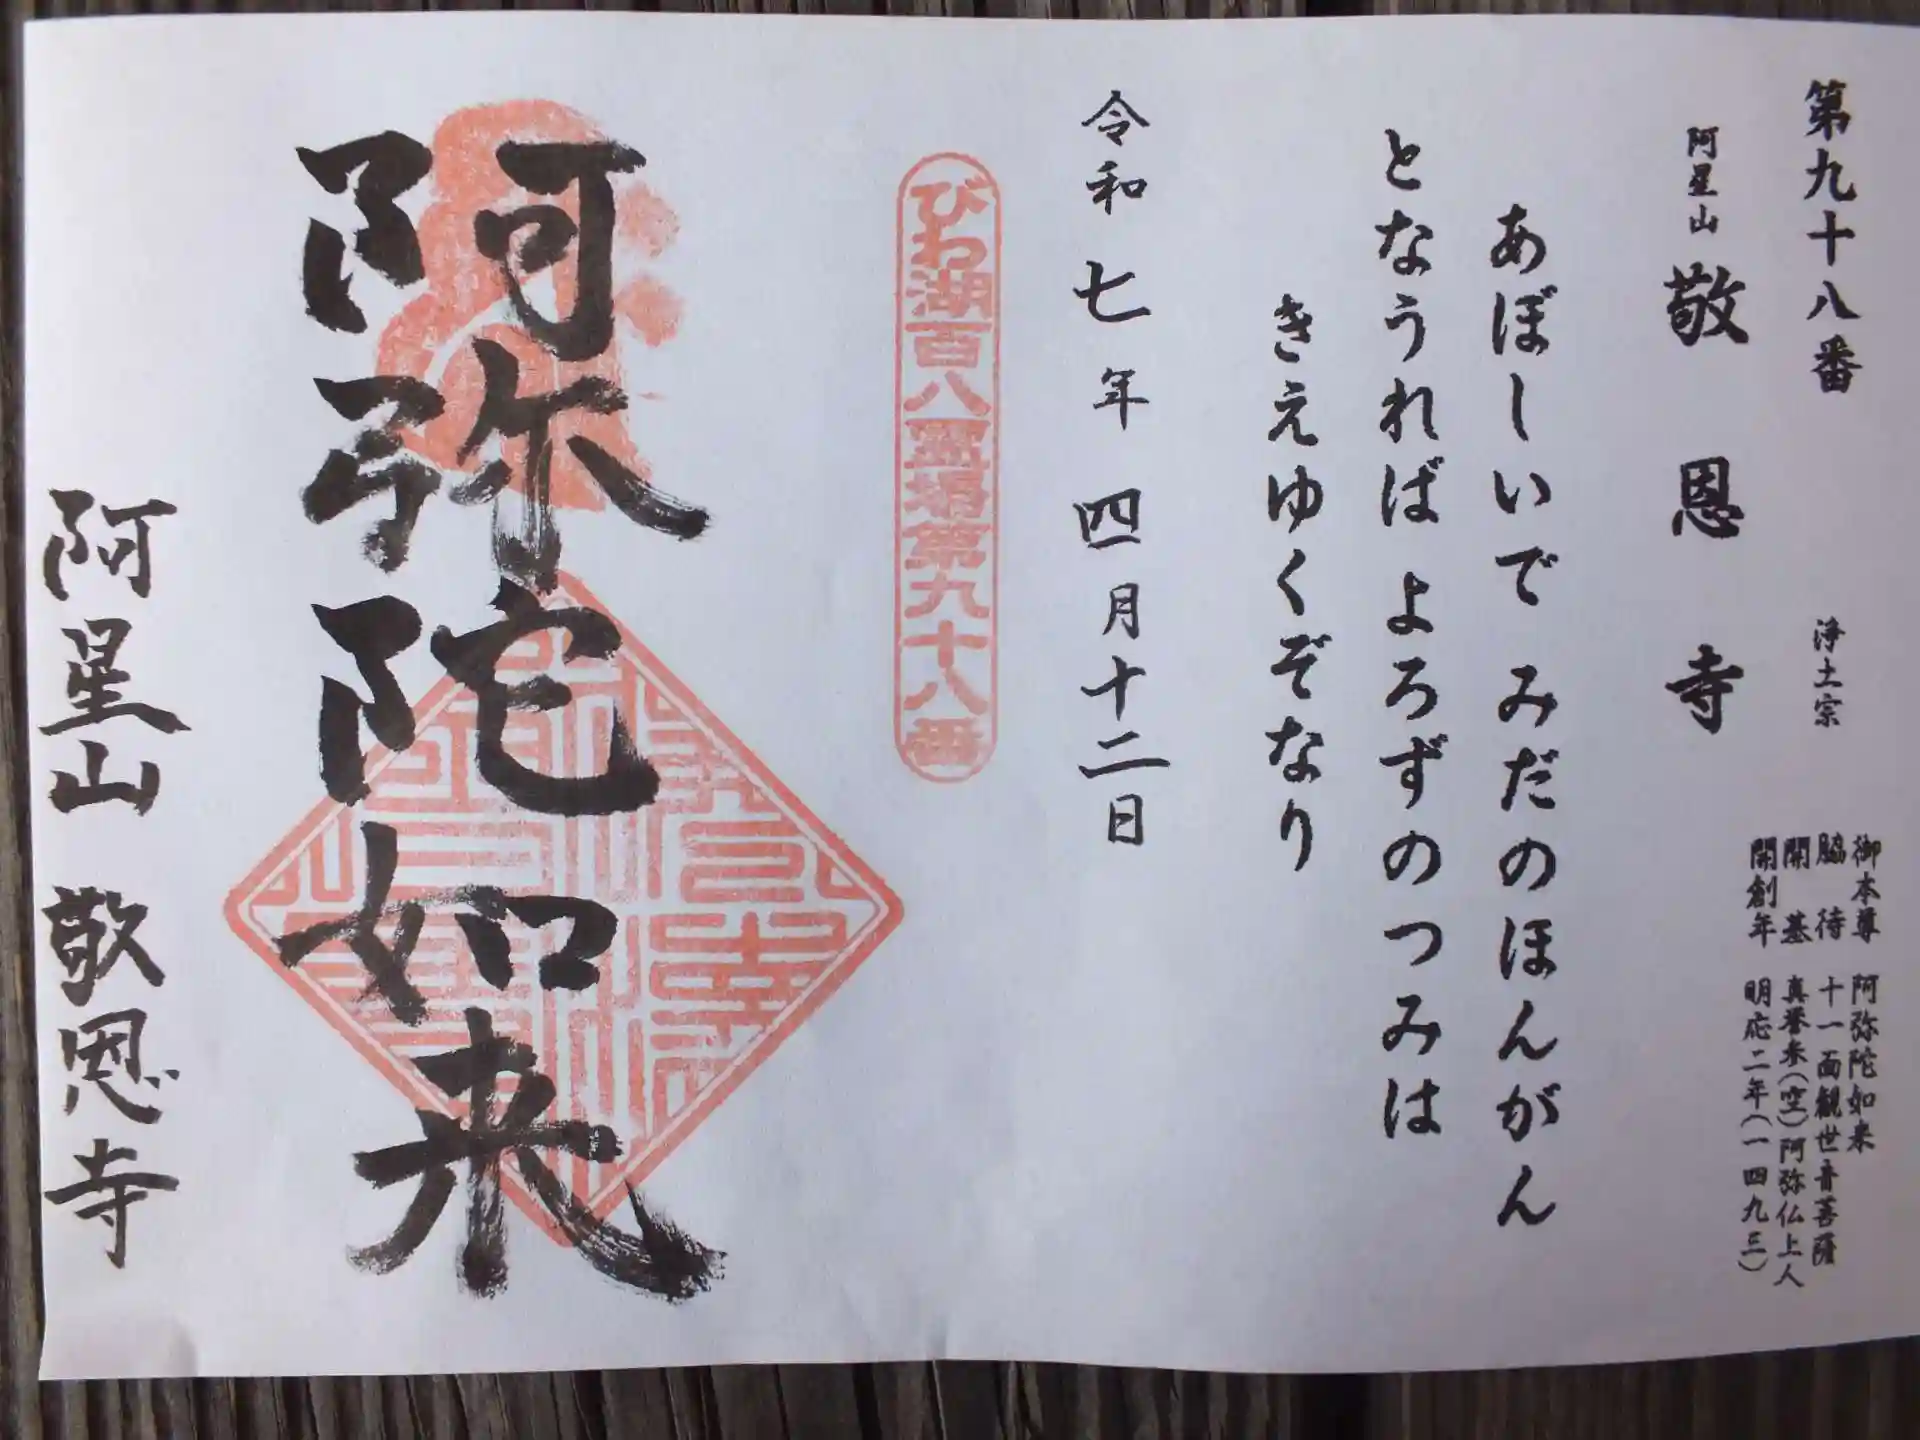 第九十八番
浄土宗
阿星山 敬恩寺
御本尊 阿弥陀如来
脇待 十一面観世音菩薩
開基 真誉来(空)阿弥仏上人
開創年 明応二年(一四九三)
あぼしいで みだのほんがん
となうれば よろずのつみは
きえゆくぞなり
令和七年四月十二日
びわ湖百八霊場第九十八番
阿弥陀如来
阿星山 敬恩寺